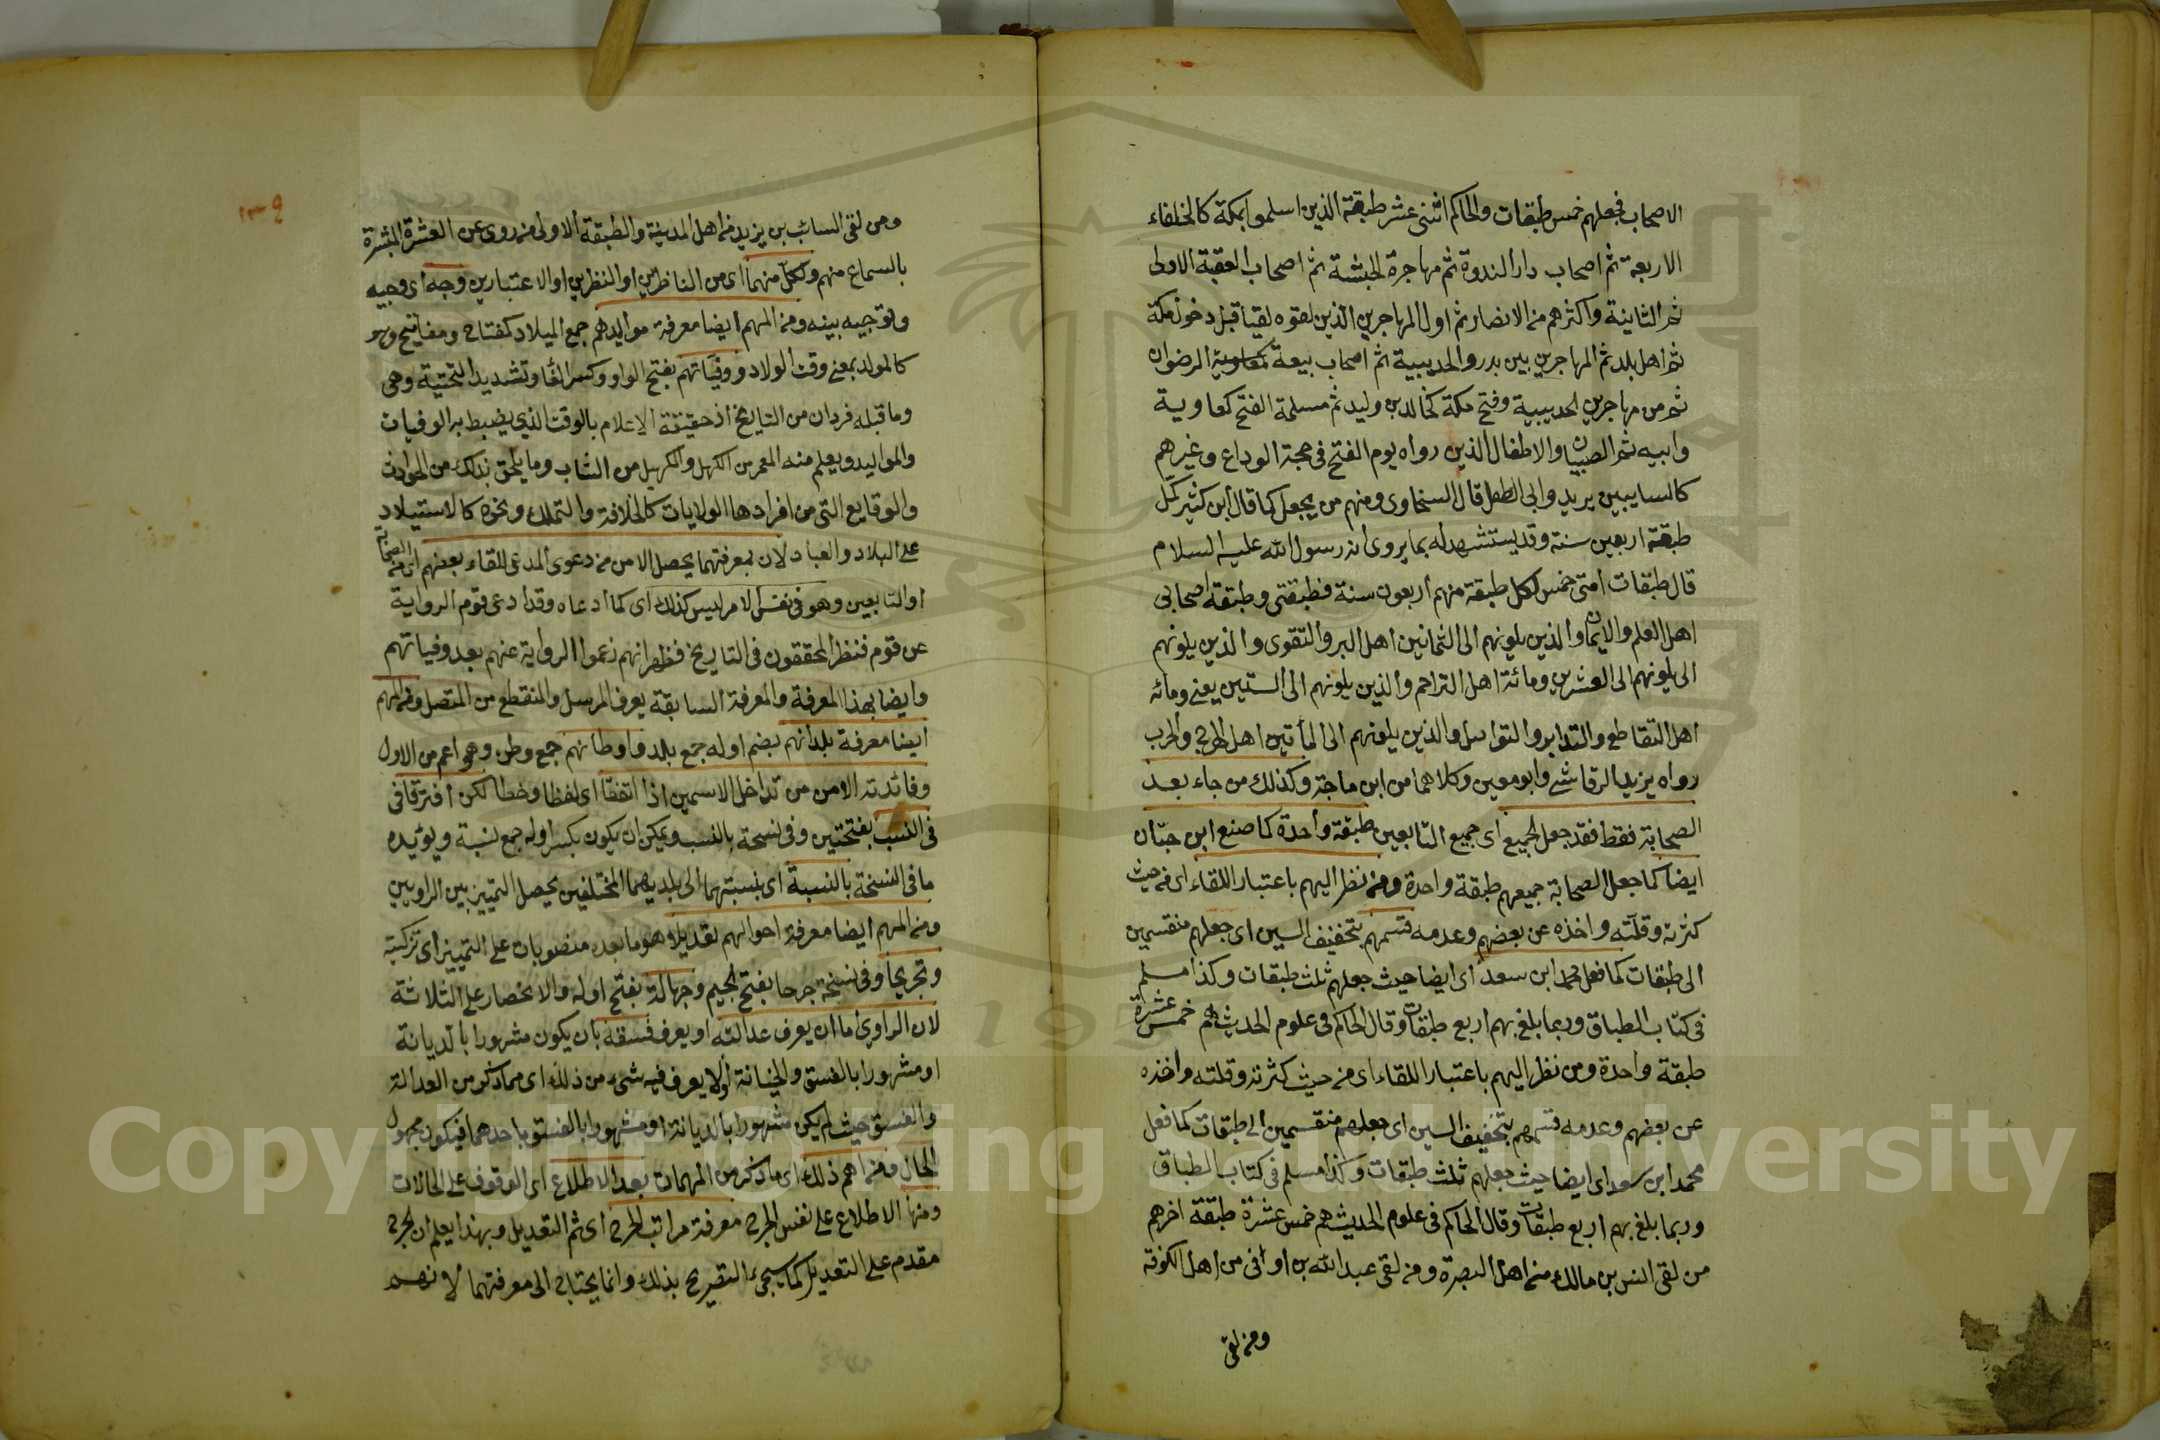 الاصحاب فجعلهم خمس طبقات والحاكم اثنى عشر طبقة الذين اسلموا بمكة كالخلفاء
الاربعة ثم اصحاب دار الندوة ثم مهاجرة الحبشة ثم اصحاب العقبة الاولى
ثم الثانية واكثرهم من الانصار ثم اول المهاجرين الذين لقوه لقيا قبل دخول مكة
ثم اهل بلد ثم المهاجرين بين بدر والحديبية ثم اصحاب بيعة الرضوان
ثم من مهاجرين الحديبية وفتح مكة كخالد بن وليد ثم مسلمة الفتح كمعاوية
وابيه ثم الصبيان والاطفال الذين رواه يوم الفتح فى حجة الوداع وغيرهم
كالسايبين يزيد وابى الطفل قال السخاوى ومنهم من يجعل كما قال ابن كثير كل
طبقة اربعين سنة وقد يستشهد له بما يروى ان رسول الله عليه السلام
قال طبقات امتى خمس لكل طبقة منهم اربعون سنة فطبقتى وطبقة اصحابى
اهل العلم والايمان والذين يلونهم الى الثمانين اهل البر والتقوى والذين يلونهم
الى يلونهم الى العشرين ومائة اهل التراحم والذين يلونهم الى الستين يعنى ومائه
اهل التقاطع والتدابر والتواسل والذين يلونهم الى المأتين اهل الهرج والحرب
رواه يزيد الرقاشى وابو معين وكلاهما من ابن ماجة وكذلك من جاء بعد
الصحابة فقط فقد جعل الجميع اى جميع التابعين طبقة واحدة كما صنع ابن حبان
ايضا كما جعل الصحابة جميعهم طبقة واحدة ومن نظر اليهم باعتبار اللقاء اى من حيث
كثرته وقلته واخذه عن بعضهم وعدمه قسمهم بتخفيف السين اى جعلهم منقسمين
الى طبقات كما فعل محمد ابن سعد اى ايضا حيث جعلهم ثلث طبقات وكذا مسلم
فى كتاب الطباق وربما بلغ بهم اربع طبقات وقال الحاكم فى علوم الحديث هم خمس عشرة
طبقة واحدة ومن نظر اليهم باعتبار اللقاء اى من حيث كثرته وقلته واخذه
عن بعضهم وعدمه قسمهم بتخفيف السين اى جعلهم منقسمين الى طبقات كما فعل
محمد ابن سعد اى ايضا حيث جعلهم ثلث طبقات وكذا مسلم فى كتاب الطباق
وربما بلغ بهم اربع طبقات وقال الحاكم فى علوم الحديث هم خمس عشرة طبقة اخرهم
من لقى انس بن مالك من اهل البصرة ومن لقى عبد الله بن اوافى من اهل الكوفة
ومن لقى
ومن لقى السائب بن يزيد من اهل المدينة والطبقة الاولى من روى عن العشرة المبشرة
بالسماع منهم ولكل منهما اى من الناظرين او النظرين او الاعتبارين وجه اى وجيه
وتوجيه بينه ومن المهم ايضا معرفة مواليدهم جمع الميلاد كمفتاح ومفاتيح وهو
كالمولد بمعنى وقت الولاد ووفياتهم بفتح الواو وكسر الفا وتشديد التحتية وهى
وما قبله فردان من التاريخ اذ حقيقة الاعلام بالوقت الذى يضبط به الوفيات
والمواليد ويعلم منه المعمر من الكهل والكهل من الشاب وما يلحق بذلك من الحوادث
والوقايع التى من افرادها الولايات كالخلافة والتملك ونحوه كالاستيلاد
على البلاد والعباد لان بمعرفتهما يحصل الامن من دعوى المدعى للقاء بعضهم اى من الصحابة
او التابعين وهو فى نفس الامر ليس كذلك اى كما ادعاه وقد ادعى قوم الرواية
عن قوم فنظر المحققون فى التاريخ فظهر انهم زعموا الرواية عنهم بعد وفياتهم
وايضا بهذا المعرفة والمعرفة السابقة يعرف المرسل والمنقطع من المتصل ومن المهم
ايضا معرفة بلدانهم بضم اوله جمع بلد واوطانهم جمع وطن وهو اعم من الاول
وفائدته الامن من تداخل الاسمين اذا اتفقا اى لفظا وخطا لكن افترقا فى
فى النسب بفتحتين وفى نسخة بالنسب ويمكن ان يكون بكسر اوله جمع نسبة ويؤيده
ما فى النسخة بالنسبة اى بنسبتهما الى بلديهما المختلفين يحصل التمييز بين الراويين
ومن المهم ايضا معرفة احوالهم تعديلا هو ما بعده منصوبان على التمييز اى تزكية
وتجريحا وفى نسخة جرحا بفتح الجيم وجهالة بفتح اوله والانحصار على الثلاثة
لان الراوى اما ان يعرف عدالته او يعرف فسقه بان يكون مشهورا بالديانة
او مشهورا بالفسق والخيانة أولا يعرف فيه شىء من ذلك اى مما ذكر من العدالة
والفسق حيث لم يكن مشهورا بالديانة او مشهورا بالفسق باحدهما فيكون مجهول
الحال ومن اهم ذلك اى ما ذكر من المهمات بعد الاطلاع اى الوقوف على الحالات
ومنها الاطلاع على نفس الجرح معرفة مراتب الجرح اى ثم التعديل وبهذا يعلم ان الجرح
مقدم على التعديل كما سيجىء التصريح بذلك وانما يحتاج الى معرفتهما لانهم
Copyright © King Saud University